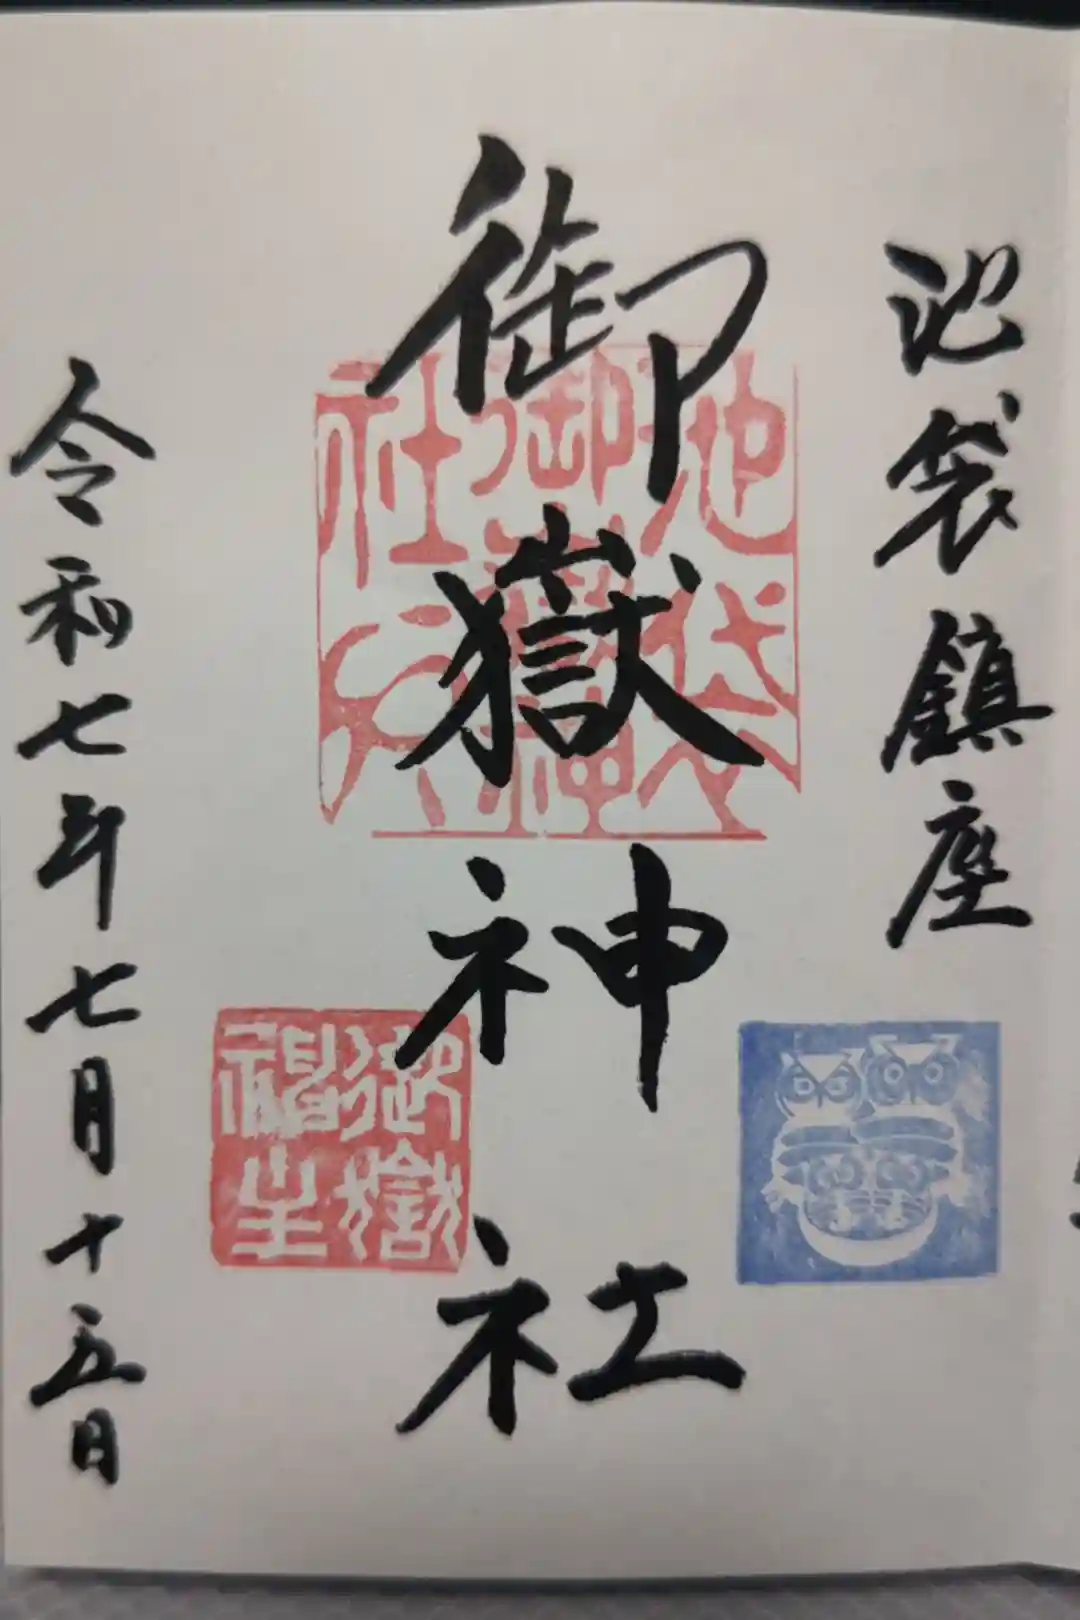 池袋鎮座
御嶽神社
令和七年七月十五日
池袋
御嶽神
社
御嶽